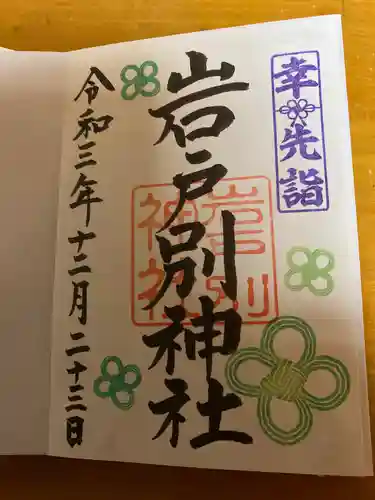 幸先詣
岩戸別神社
岩戸別神社
令和三年十二月二十三日